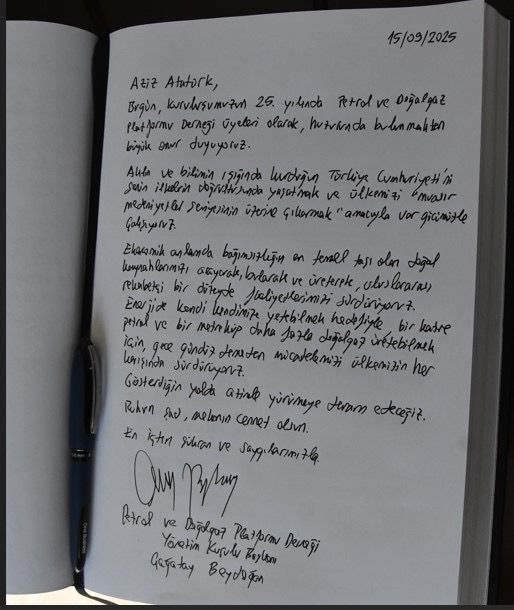 15/09/2025
Aziz Atatürk,
Bugün, kuruluşumuzun 25. yılında Petrol ve Doğalgaz
Platformu Derneği üyeleri olarak, huzurunda bulunmaktan
büyük onur duyuyoruz.
Aklın ve bilimin ışığında kurduğun Türkiye Cumhuriyeti'ni
senin ilkelerin doğrultusunda yaşatmak ve ülkemizi "muasır
medeniyetler seviyesinin üzerine çıkarmak" amacıyla var gücümüzle
çalışıyoruz.
Ekonomik anlamda bağımsızlığın en temel taşı olan doğal
kaynaklarımızı arayarak, bularak ve üreterek, uluslararası
rekabetçi bir düzeyde faaliyetlerimizi sürdürüyoruz.
Enerjide kendi kendimize yetebilmek hedefiyle, bir katre
petrol ve bir metreküp daha fazla doğalgaz üretebilmek
için, gece gündüz demeden mücadelemizi ülkemizin her
karışında sürdürüyoruz.
Gösterdiğin yolda azimle yürümeye devam edeceğiz.
Ruhun şad, mekanın cennet olsun.
En içten şükran ve saygılarımızla.
Petrol ve Doğalgaz Platformu Derneği
Yönetim Kurulu Başkanı
Çağatay Beydoğan